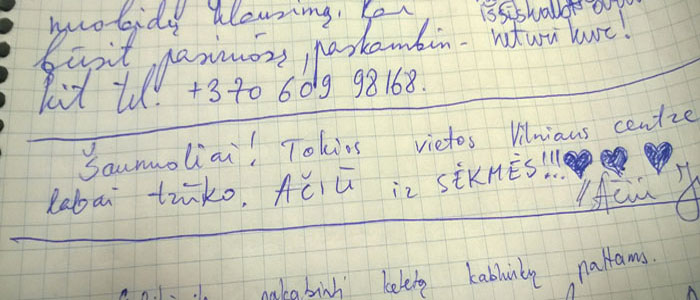 nuobidų klausimą, kai
išsiskalbt
būsit pasiruošę, paskambin-
neturi kur!
kit tel. +370 609 98168.
Šaunuoliai! Tokios vietos Vilniaus centre
labai trūko. AČIŪ iz SĖKMĖS!!!
"Ačiū"
pakabinti keletą kabliukų paltams.